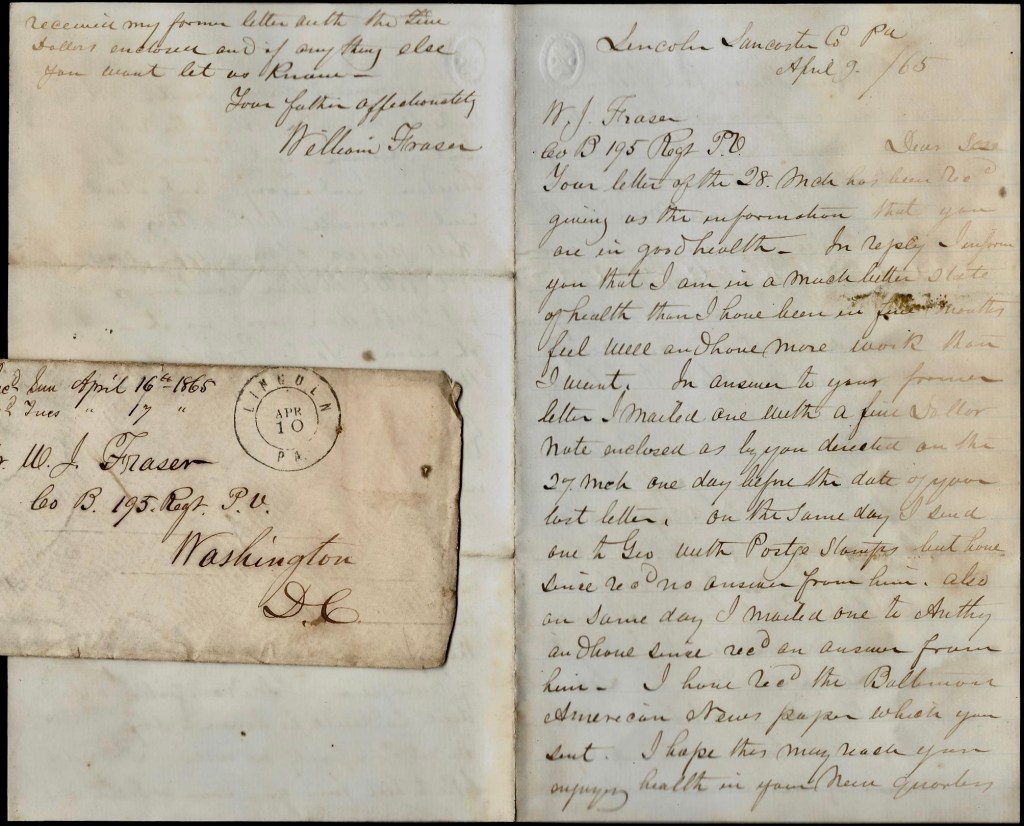 Lincoln Lancaster Co Pa
April 9. /65
W. J. Fraser
Co B 195 Regt P.V. Dear Son
Your letter of the 28. Mch has been Recd
giving us the information that you
are in good health - In reply I inform
you that I am in a much better state
of health than I have been in five months
feel well and have more work than
I want. In answer to your former
letter I mailed one with a five Dollar
Note enclosed as by you directed on the
27. Mch one day before the date of your
last letter. on the same day I send
one to Geo with Postge Stamps but have
since recd no answer from him. also
on same day I mailed one to Anthy
and have since recd an answer from
him - I have recd the Baltimore
American News paper which you
sent. I hope this may reach you
enjoying health in your New quarters
received my former letter with the five
Dollars enclosed and if anything else
you want let us know -
Your father affectionately
William Fraser
Recd Sun April 16th 1865
Tues " 17 "
W. J. Fraser
Co B. 195. Regt. P. V.
Washington
D.C.
LINCOLN
APR
10
PA